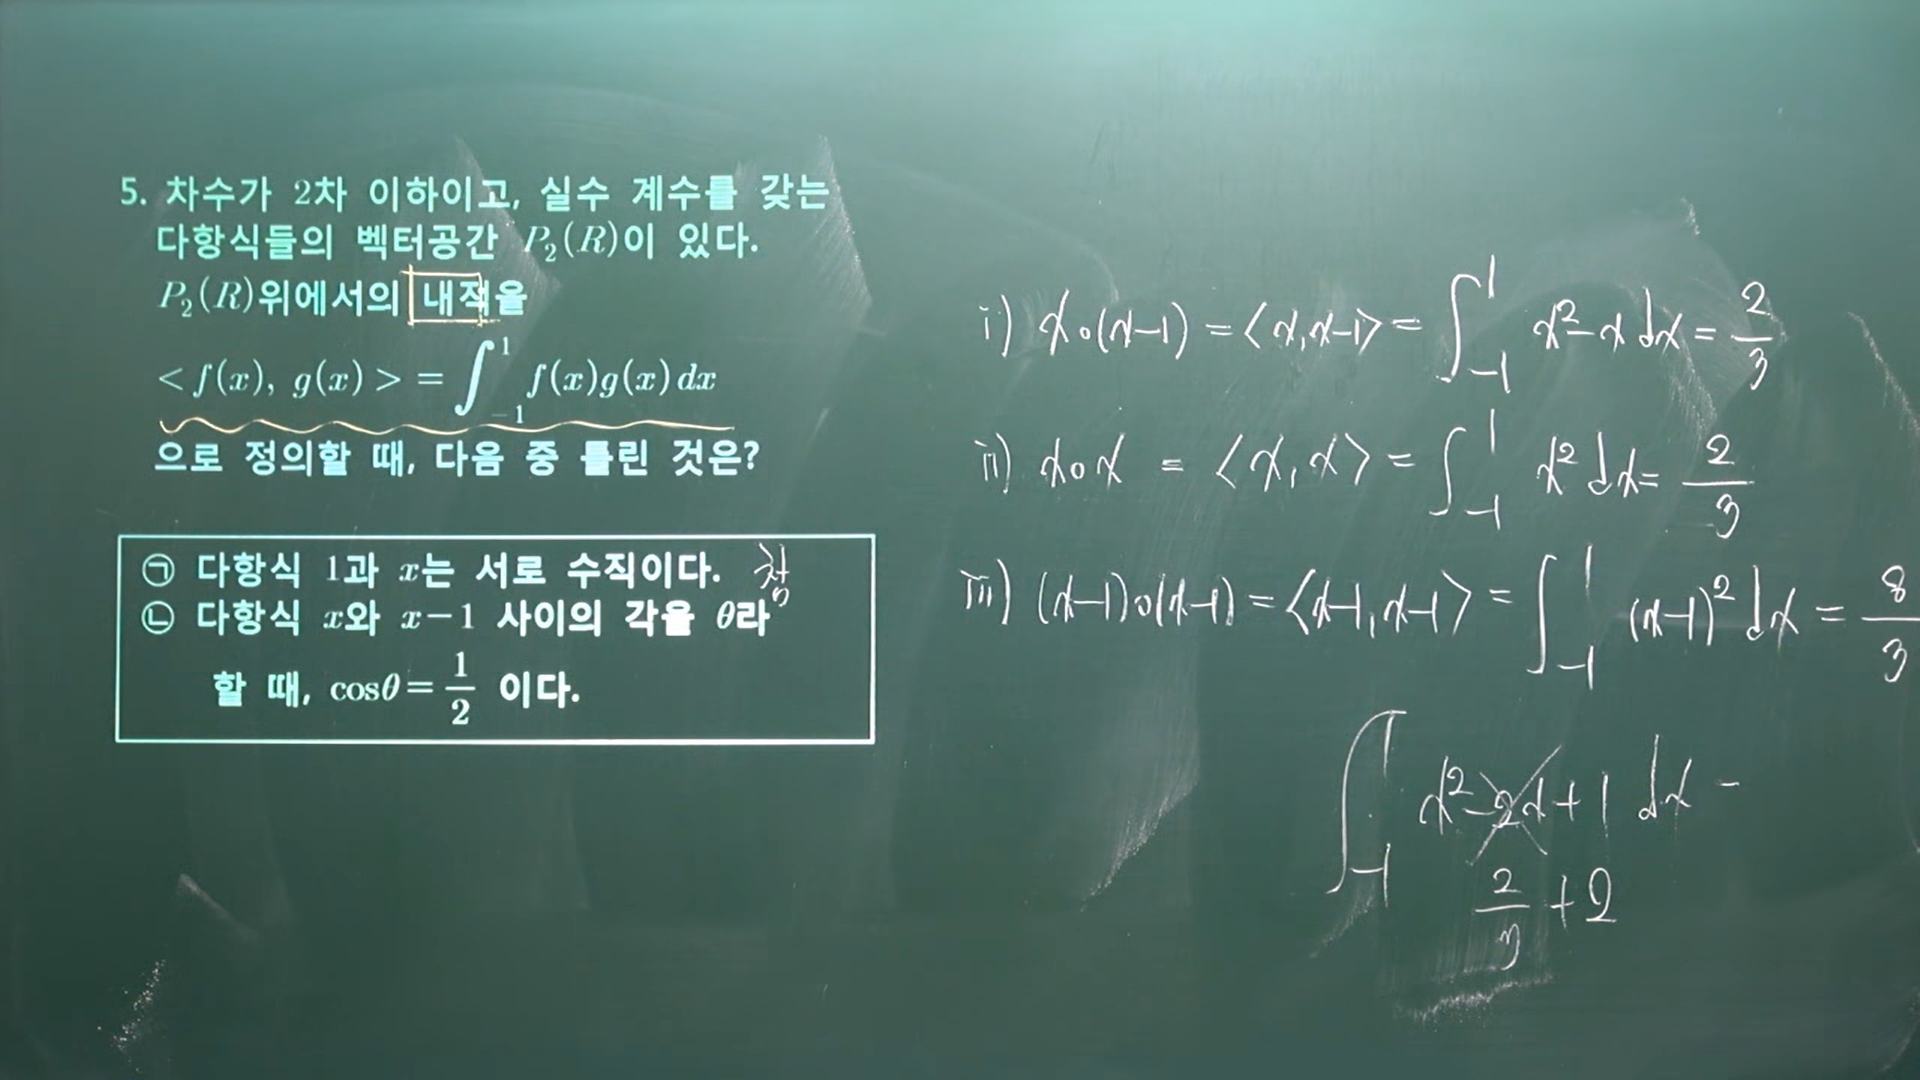 5. 차수가 2차 이하이고, 실수 계수를 갖는
다항식들의 벡터공간 P₂(R)이 있다.
P₂(R)위에서의 내적을
<f(x), g(x)> = ∫₋₁¹ f(x)g(x)dx
으로 정의할 때, 다음 중 틀린 것은?
㉠ 다항식 1과 x는 서로 수직이다. 참
㉡ 다항식 x와 x-1 사이의 각을 θ라
할 때, cosθ = 1/2 이다.
i) x∘(x-1) = <x, x-1> = ∫₋₁¹ x²-x dx = 2/3
ii) x∘x = <x, x> = ∫₋₁¹ x² dx = 2/3
iii) (x-1)∘(x-1) = <x-1, x-1> = ∫₋₁¹ (x-1)² dx = 8/3
∫₋₁¹ x²-2x+1 dx =
2/3 + 2